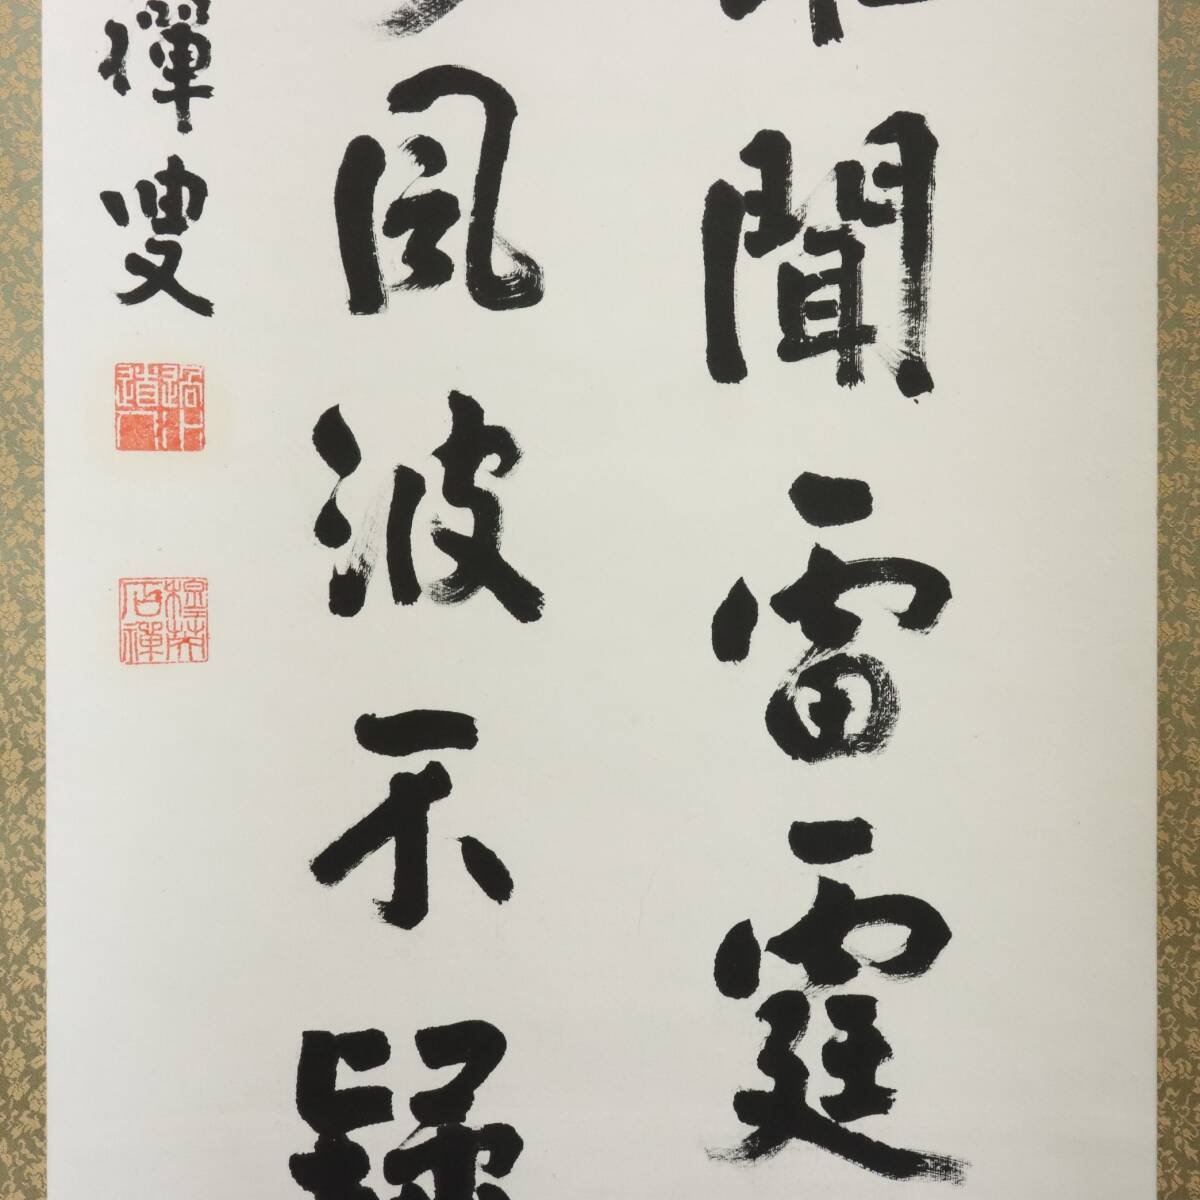 聞雷霆
風波不疑
禪叟